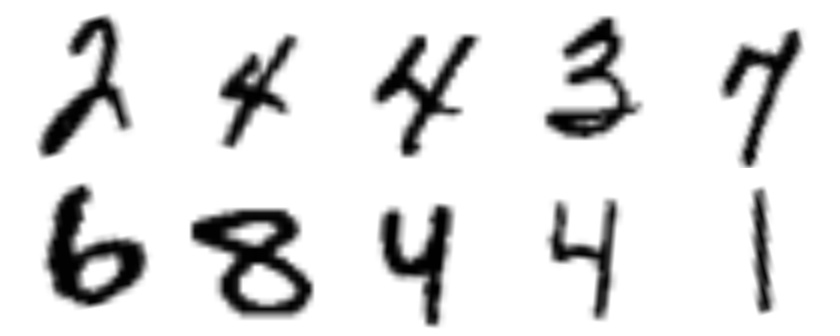 2 4 4 3 7
6 8 4 4 1